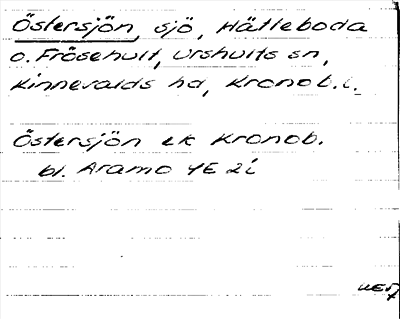 Östersjön, sjö, Hätteboda
o. Frösehult, Urshults sn,
Kinnevalds hd, Kronob. l.
Östersjön ek Kronob.
bl. Aramo 4E 2i